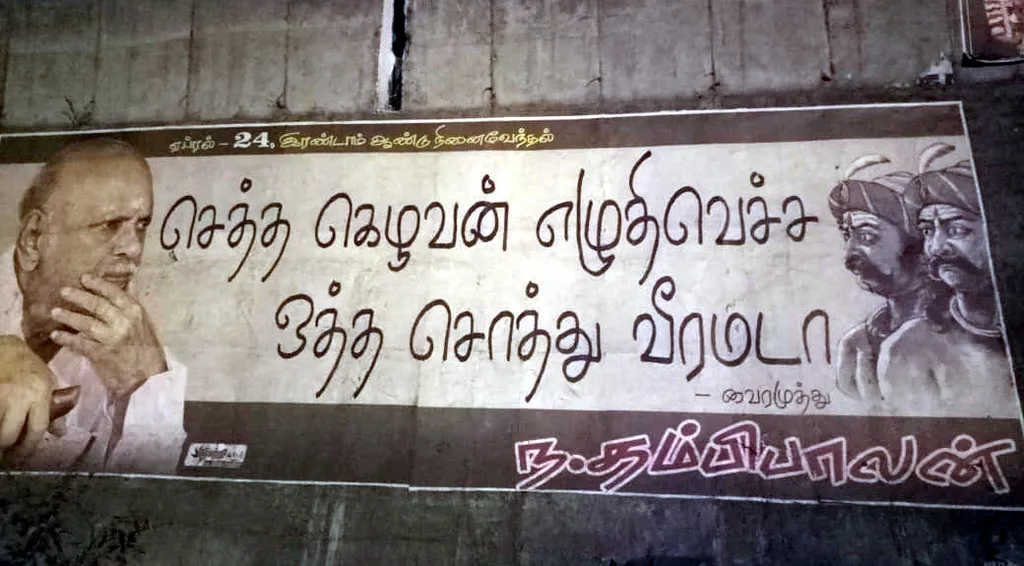 ஏப்ரல் - 24, இரண்டாம் ஆண்டு நினைவேந்தல்
செத்த கெழவன் எழுதிவெச்ச
ஒத்த சொத்து வீரமடா
- வைரமுத்து
ந.தம்பிபாலன்